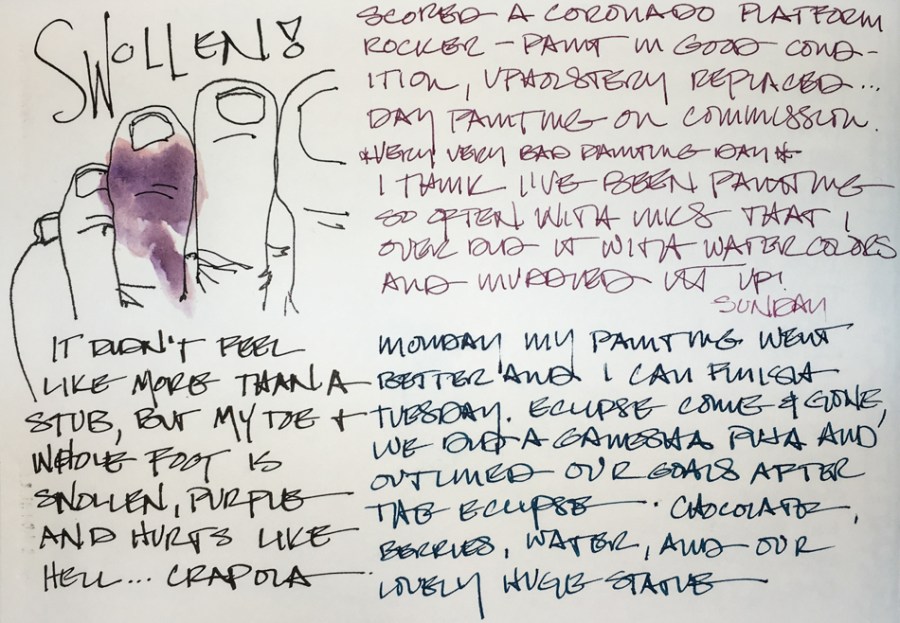 SWOLLEN!
SCORED A CORONADO PLATFORM
ROCKER - PAINT IN GOOD COND-
ITION, UPHOLSTERY REPLACED...
DAY PAINTING ON COMMISSION.
*VERY VERY BAD PAINTING DAY*
I THINK I'VE BEEN PAINTING
SO OFTEN WITH INKS THAT I
OVER DID IT WITH WATERCOLORS
AND MUDDIED IT UP!
SUNDAY
IT DIDN'T FEEL
LIKE MORE THAN A
STUB, BUT MY TOE +
WHOLE FOOT IS
SWOLLEN, PURPLE
AND HURTS LIKE
HELL... CRAPOLA
MONDAY MY PAINTING WENT
BETTER AND I CAN FINISH
TUESDAY. ECLIPSE COME & GONE,
WE DID A GANESHA PUJA AND
OUTLINED OUR GOALS AFTER
THE ECLIPSE. CHOCOLATE,
BERRIES, WATER, AND OUR
LOVELY HUGE STATUE